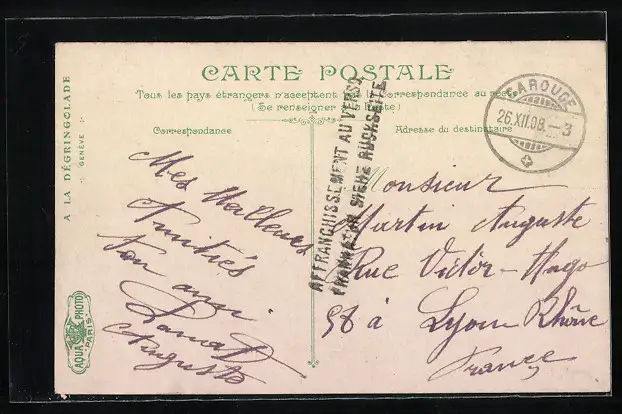 CARTE POSTALE
Tous les pays étrangers n'acceptent pas la Correspondance au recto
(Se renseigner à la Poste)
Correspondance
Adresse du destinataire
A LA DÉGRINGOLADE
GENÈVE
CAROUGE
26.XII.08.-3
AFFRANCHISSEMENT AU VERSO
FRANKATUR SIEHE RÜCKSEITE
Mes
Amitiés
Ton ami
Auguste
Monsieur
Martin Auguste
Rue Victor-Hugo
58 à Lyon Rhône
France
AQUA PHOTO
PARIS